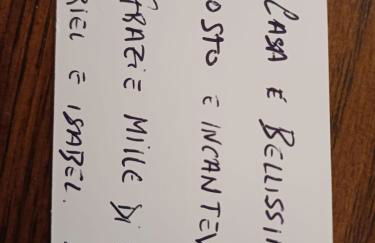 CASA E BELLISSI
OSTO E INCANTEV
GRAZIE MILLE DI
RIEL E ISABEL.